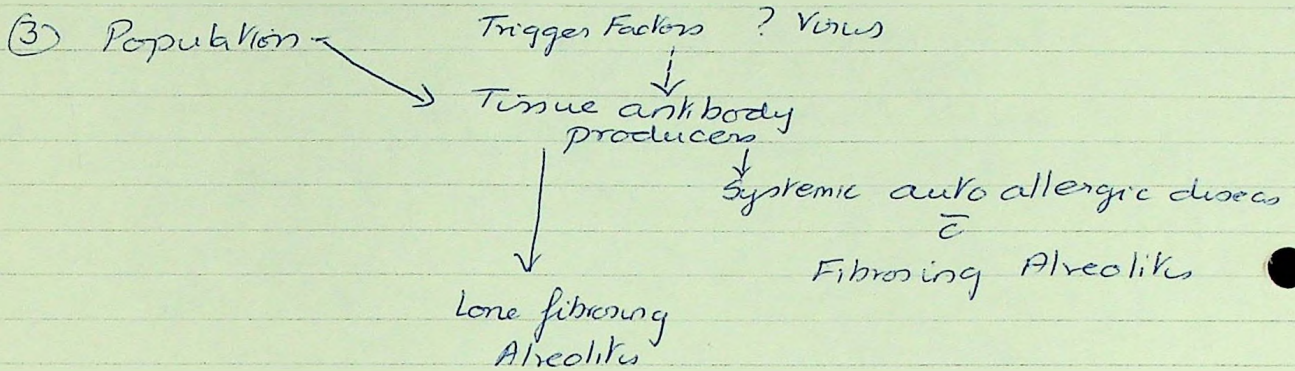 ③ Population
Trigger Factors ? Virus
Tissue antibody
producers
Systemic auto allergic diseas
c̄
Fibrosing Alveolitis
Lone fibrosing
Alveolitis